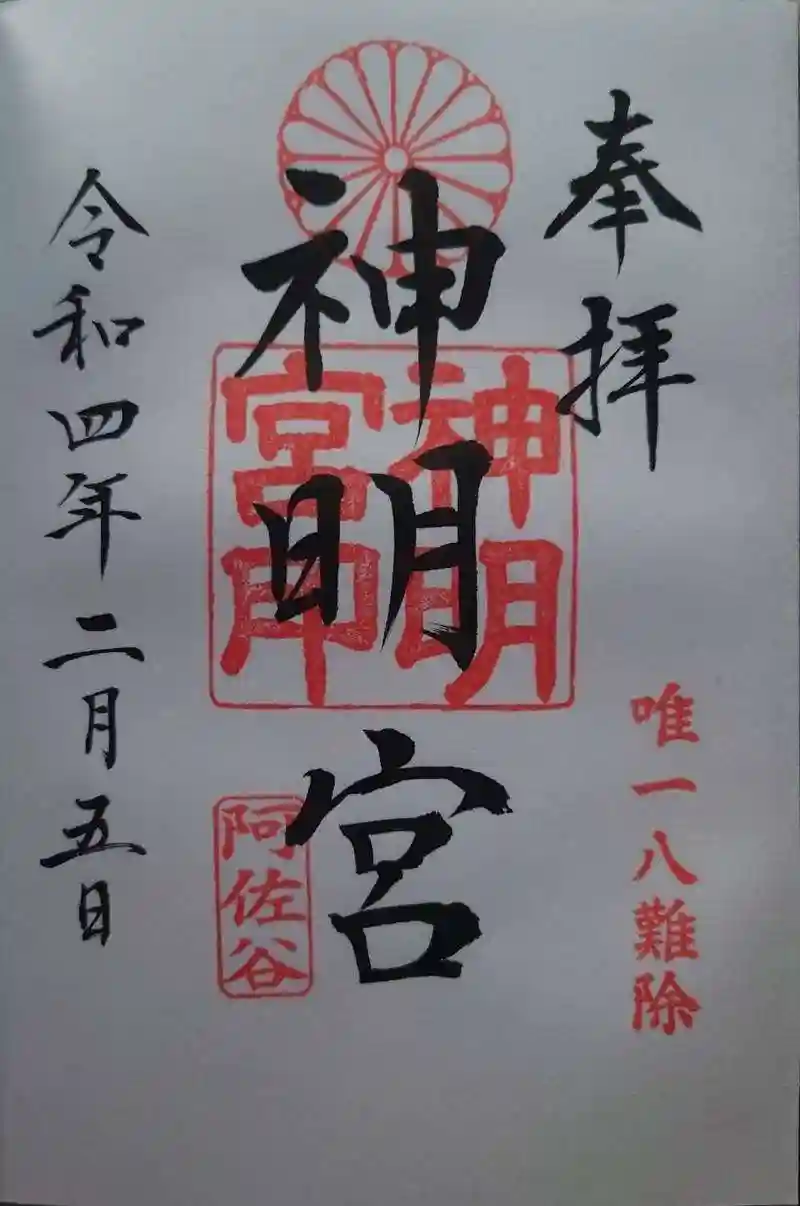 奉拝
唯一八難除
神明宮
神明
宮印
阿佐谷
令和四年二月五日